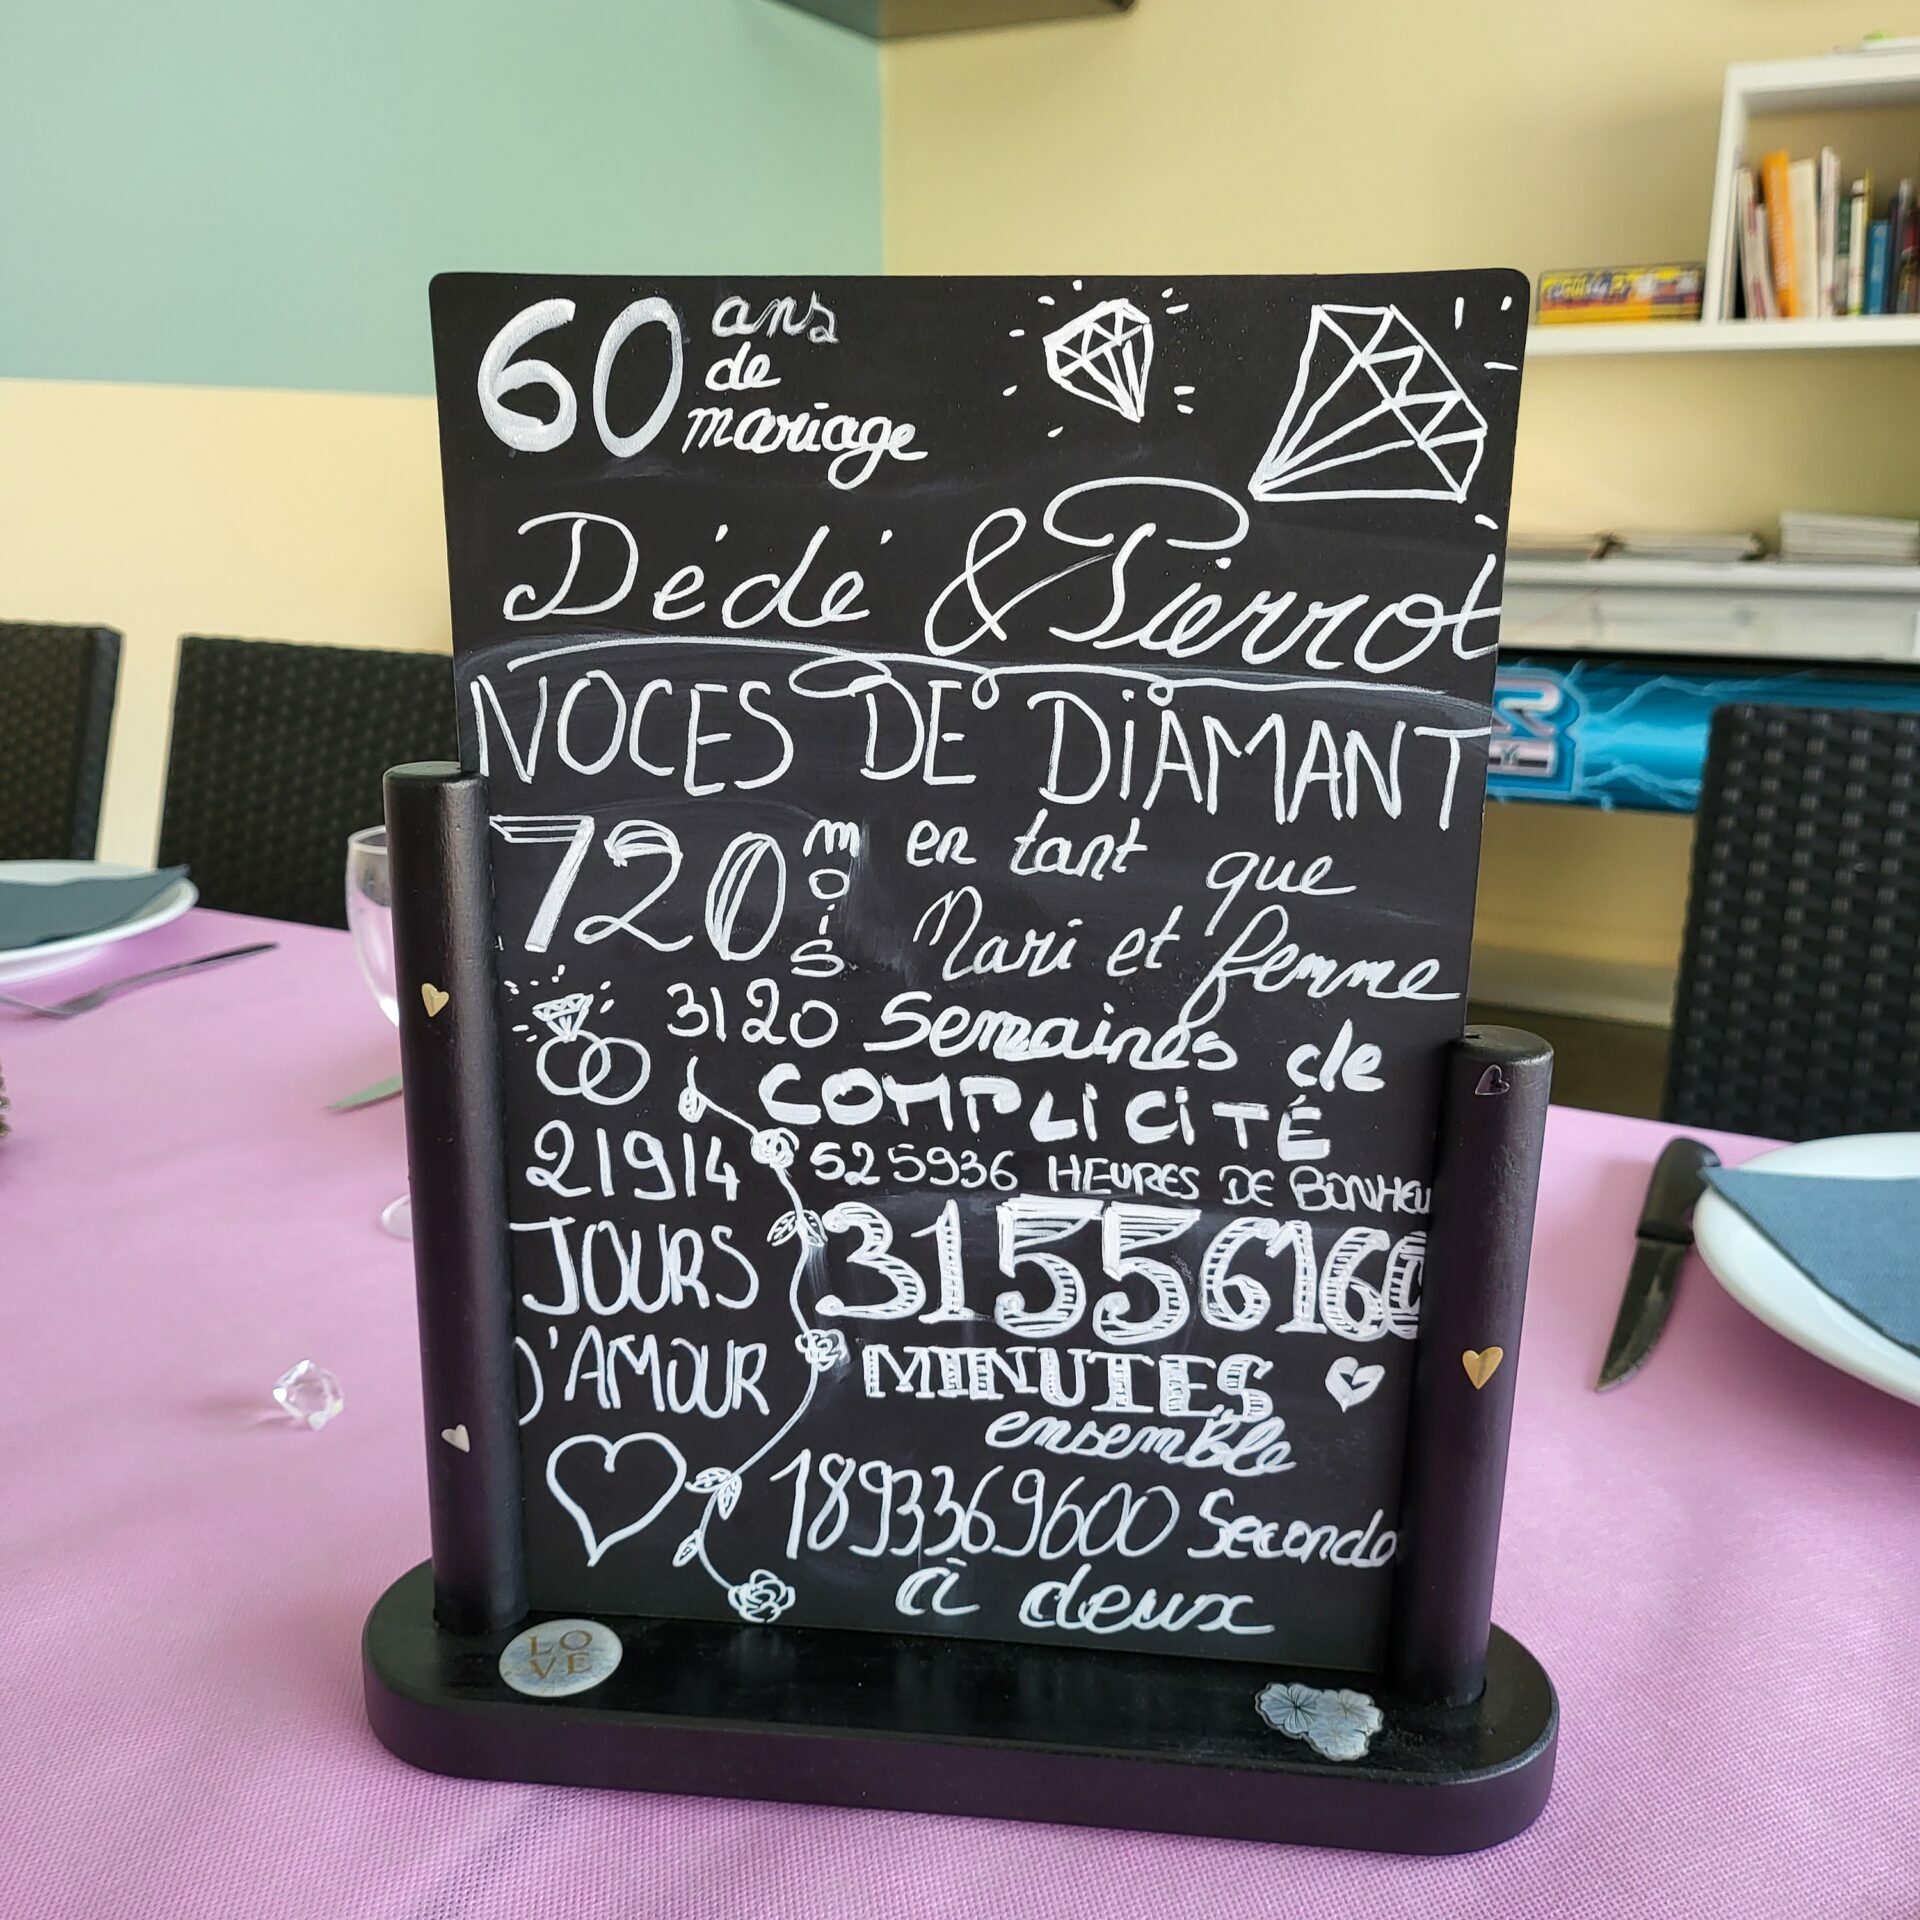 60 ans
de
mariage
Dédé & Pierrot
NOCES DE DiAMANT
720 mois en tant que
Mari et femme
3120 Semaines de
COMPLiCiTÉ
21914
JOURS
D'AMOUR
525936 HEURES DE BONHEU
31556160
MINUTES
ensemble
1893369600 Seconde
à deux
LO
VE